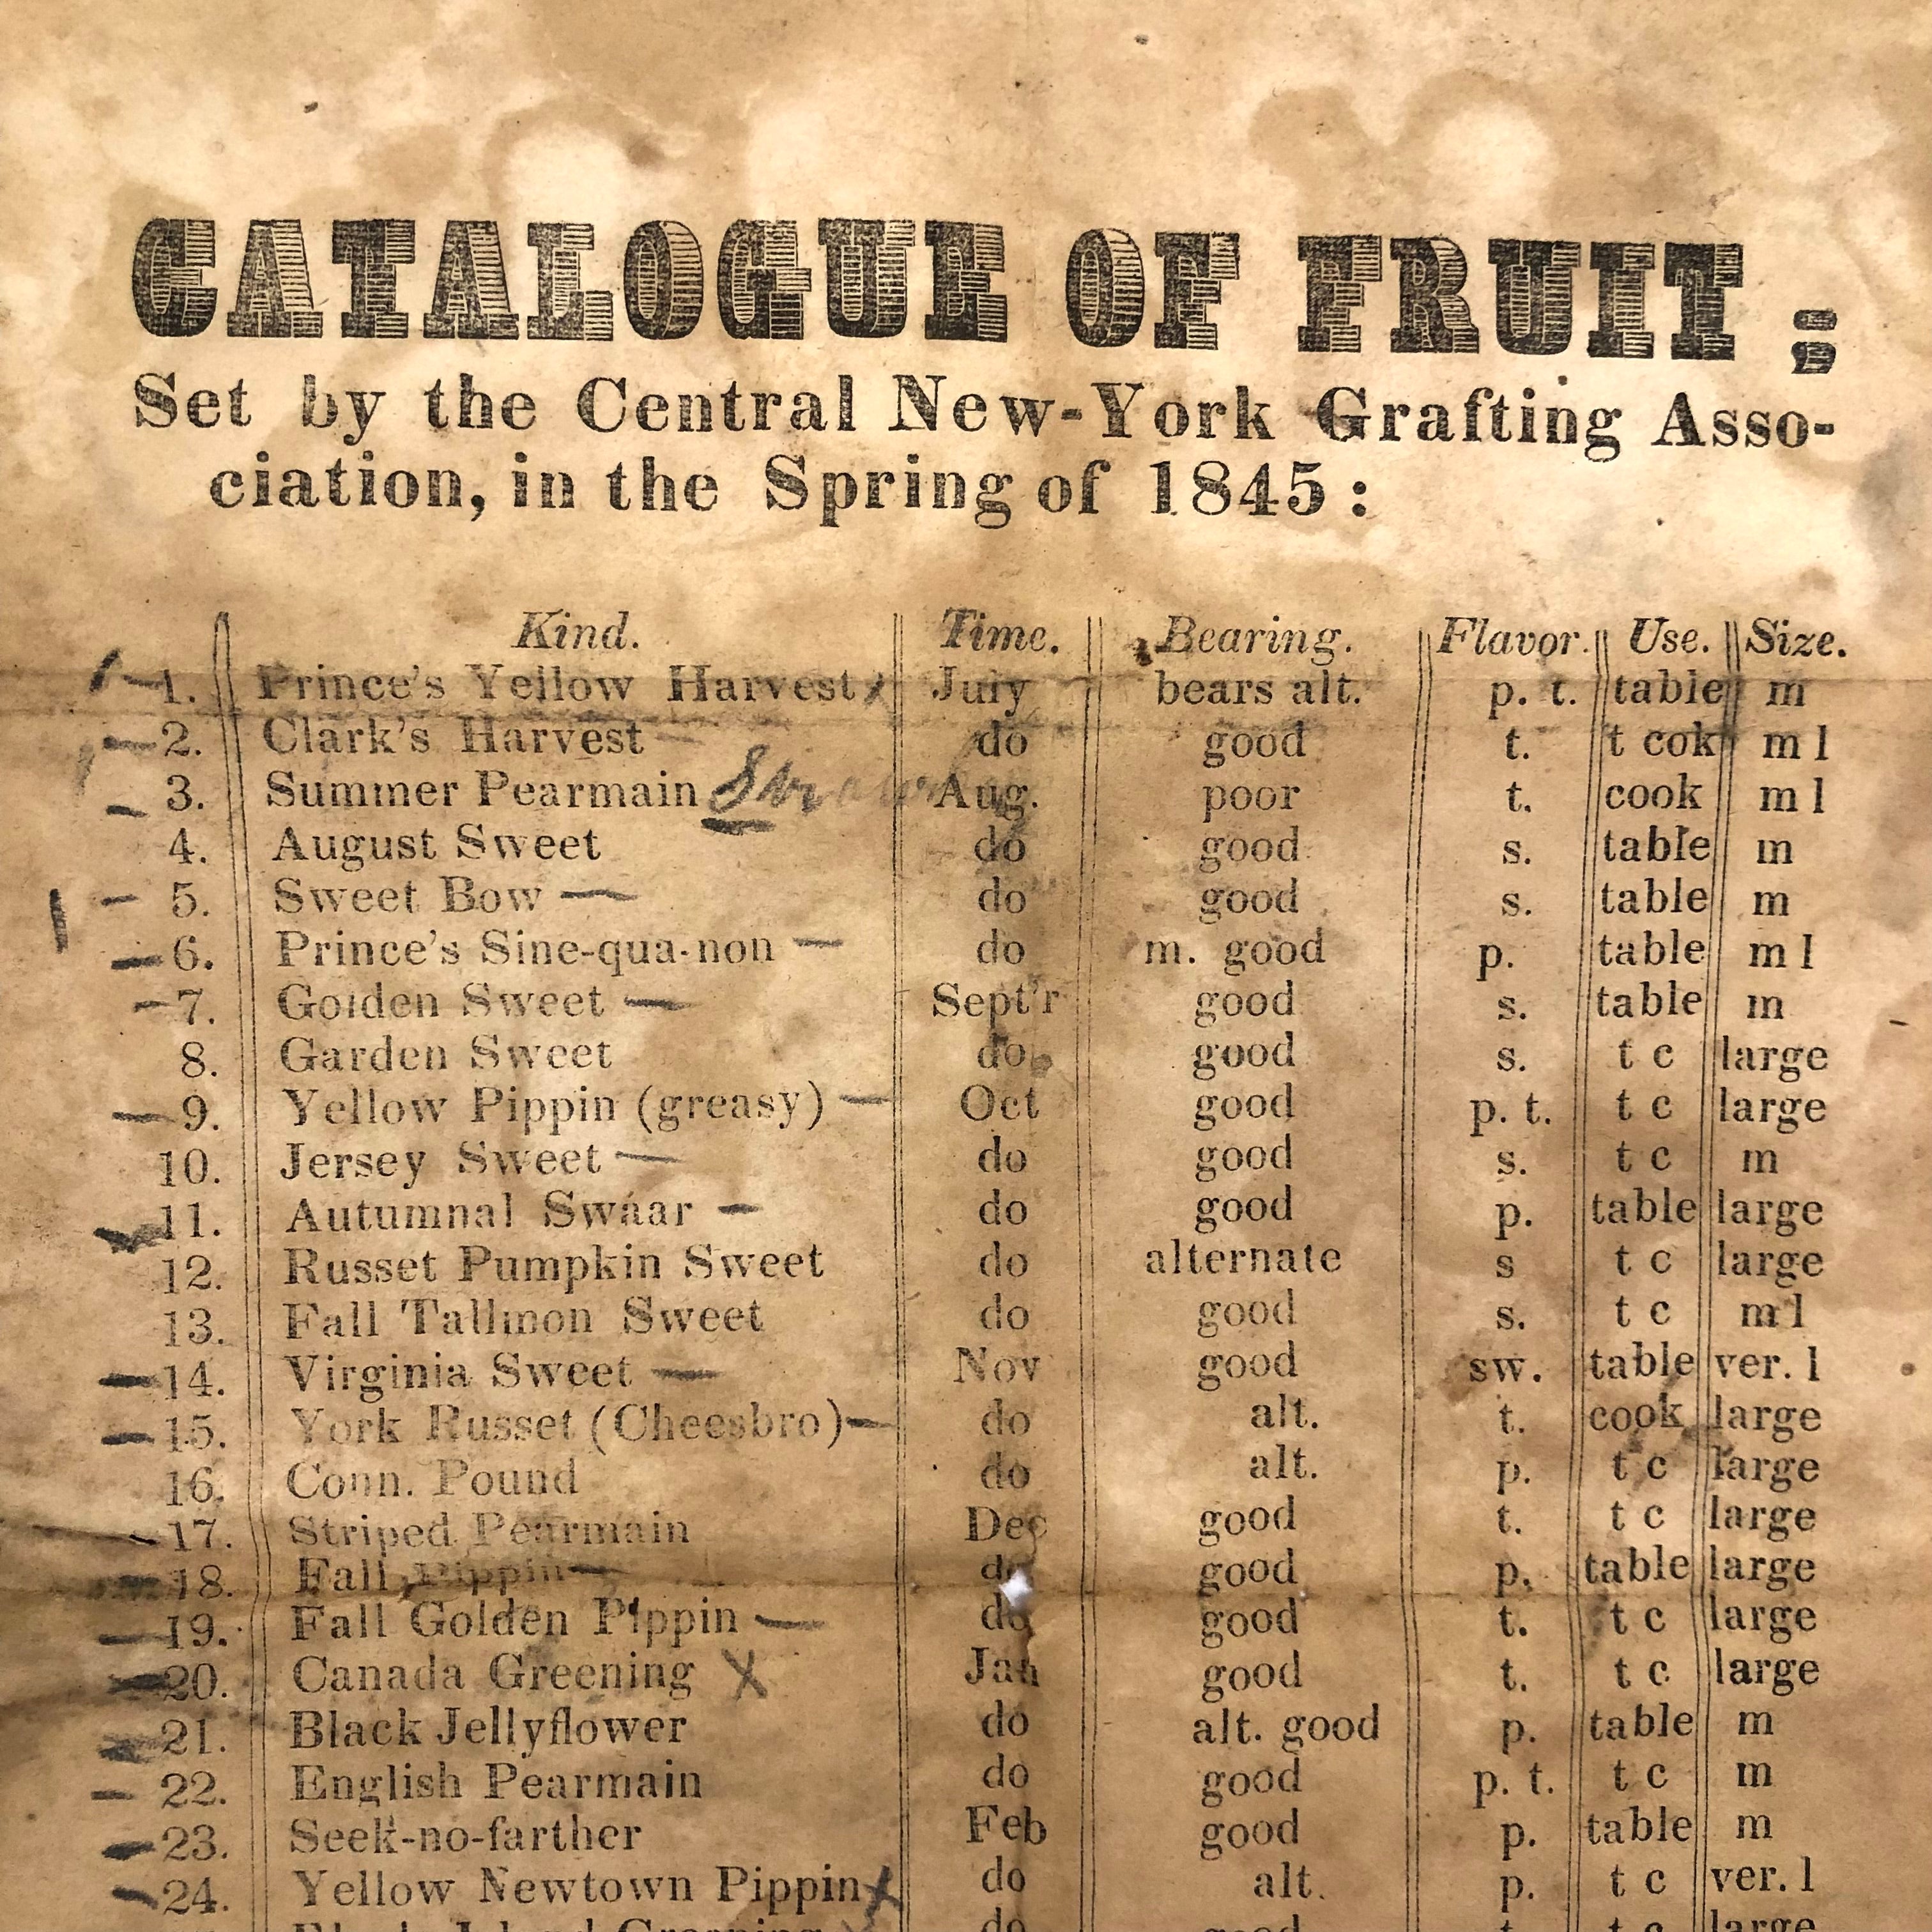 CATALOGUE OF FRUIT;
Set by the Central New-York Grafting Asso-
ciation, in the Spring of 1845:
Kind. Time. Bearing. Flavor. Use. Size.
1. Prince's Yellow Harvest x July bears alt. p. t. table m
2. Clark's Harvest do good t. t cok m l
3. Summer Pearmain Aug. poor t. cook m l
4. August Sweet do good s. table m
5. Sweet Bow do good s. table m
6. Prince's Sine-qua-non do m. good p. table m l
7. Golden Sweet Sept'r good s. table m
8. Garden Sweet do good s. t c large
9. Yellow Pippin (greasy) Oct good p. t. t c large
10. Jersey Sweet do good s. t c m
11. Autumnal Swáar do good p. table large
12. Russet Pumpkin Sweet do alternate s t c large
13. Fall Tallmon Sweet do good s. t c m l
14. Virginia Sweet Nov good sw. table ver. l
15. York Russet (Cheesbro) do alt. t. cook large
16. Conn. Pound do alt. p. t c large
17. Striped Pearmain Dec good t. t c large
18. Fall Pippin do good p. table large
19. Fall Golden Pippin do good t. t c large
20. Canada Greening X Jan good t. t c large
21. Black Jellyflower do alt. good p. table m
22. English Pearmain do good p. t. t c m
23. Seek-no-farther Feb good p. table m
24. Yellow Newtown Pippin x do alt. p. t c ver. l